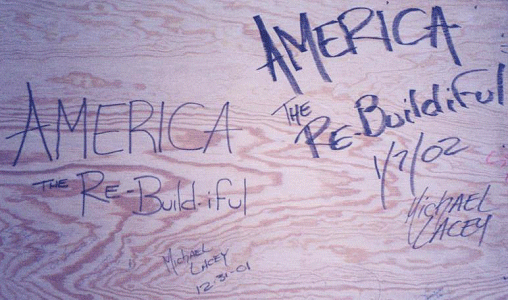 AMERICA
THE RE-Build-iful
MICHAEL
LACEY
12-31-01
AMERICA
THE
RE-Buildiful
1/2/02
Michael
LACEY